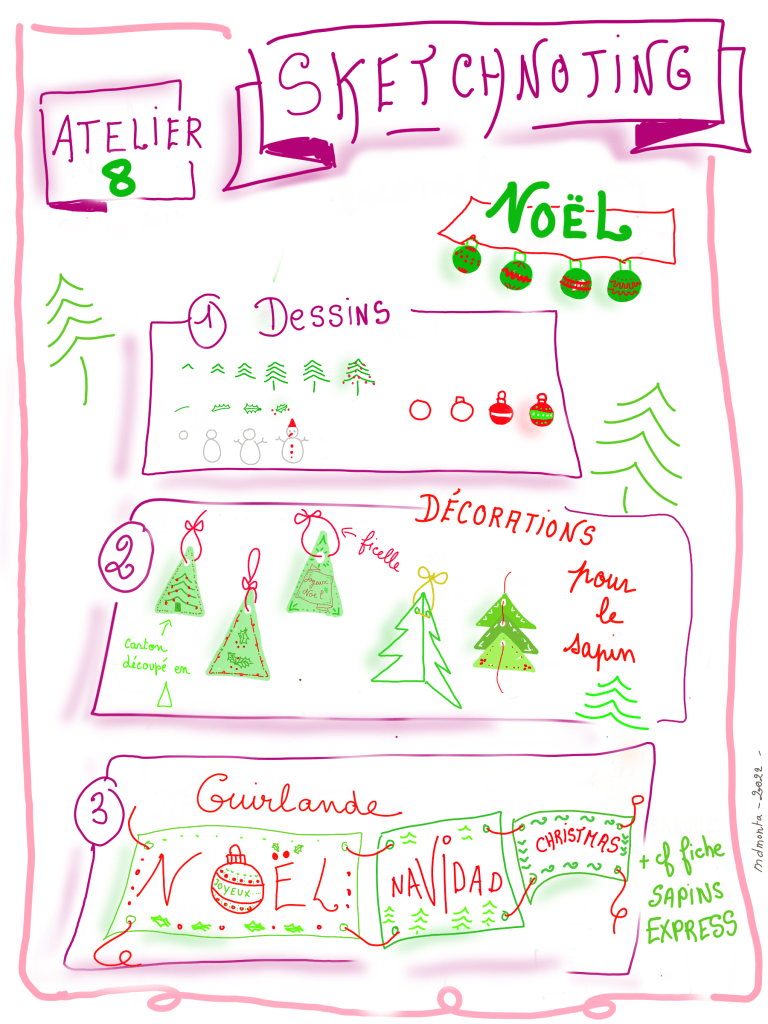 SKETCHNOTING
ATELIER
8
NOËL
1 Dessins
2
DÉCORATIONS
pour
le
sapin
ficelle
Joyeux
Noël
Carton
découpé en
3
Guirlande
NOËL
JOYEUX
NAVIDAD
CHRISTMAS
+ cf fiche
SAPINS
EXPRESS
mdmonta - 2022 -